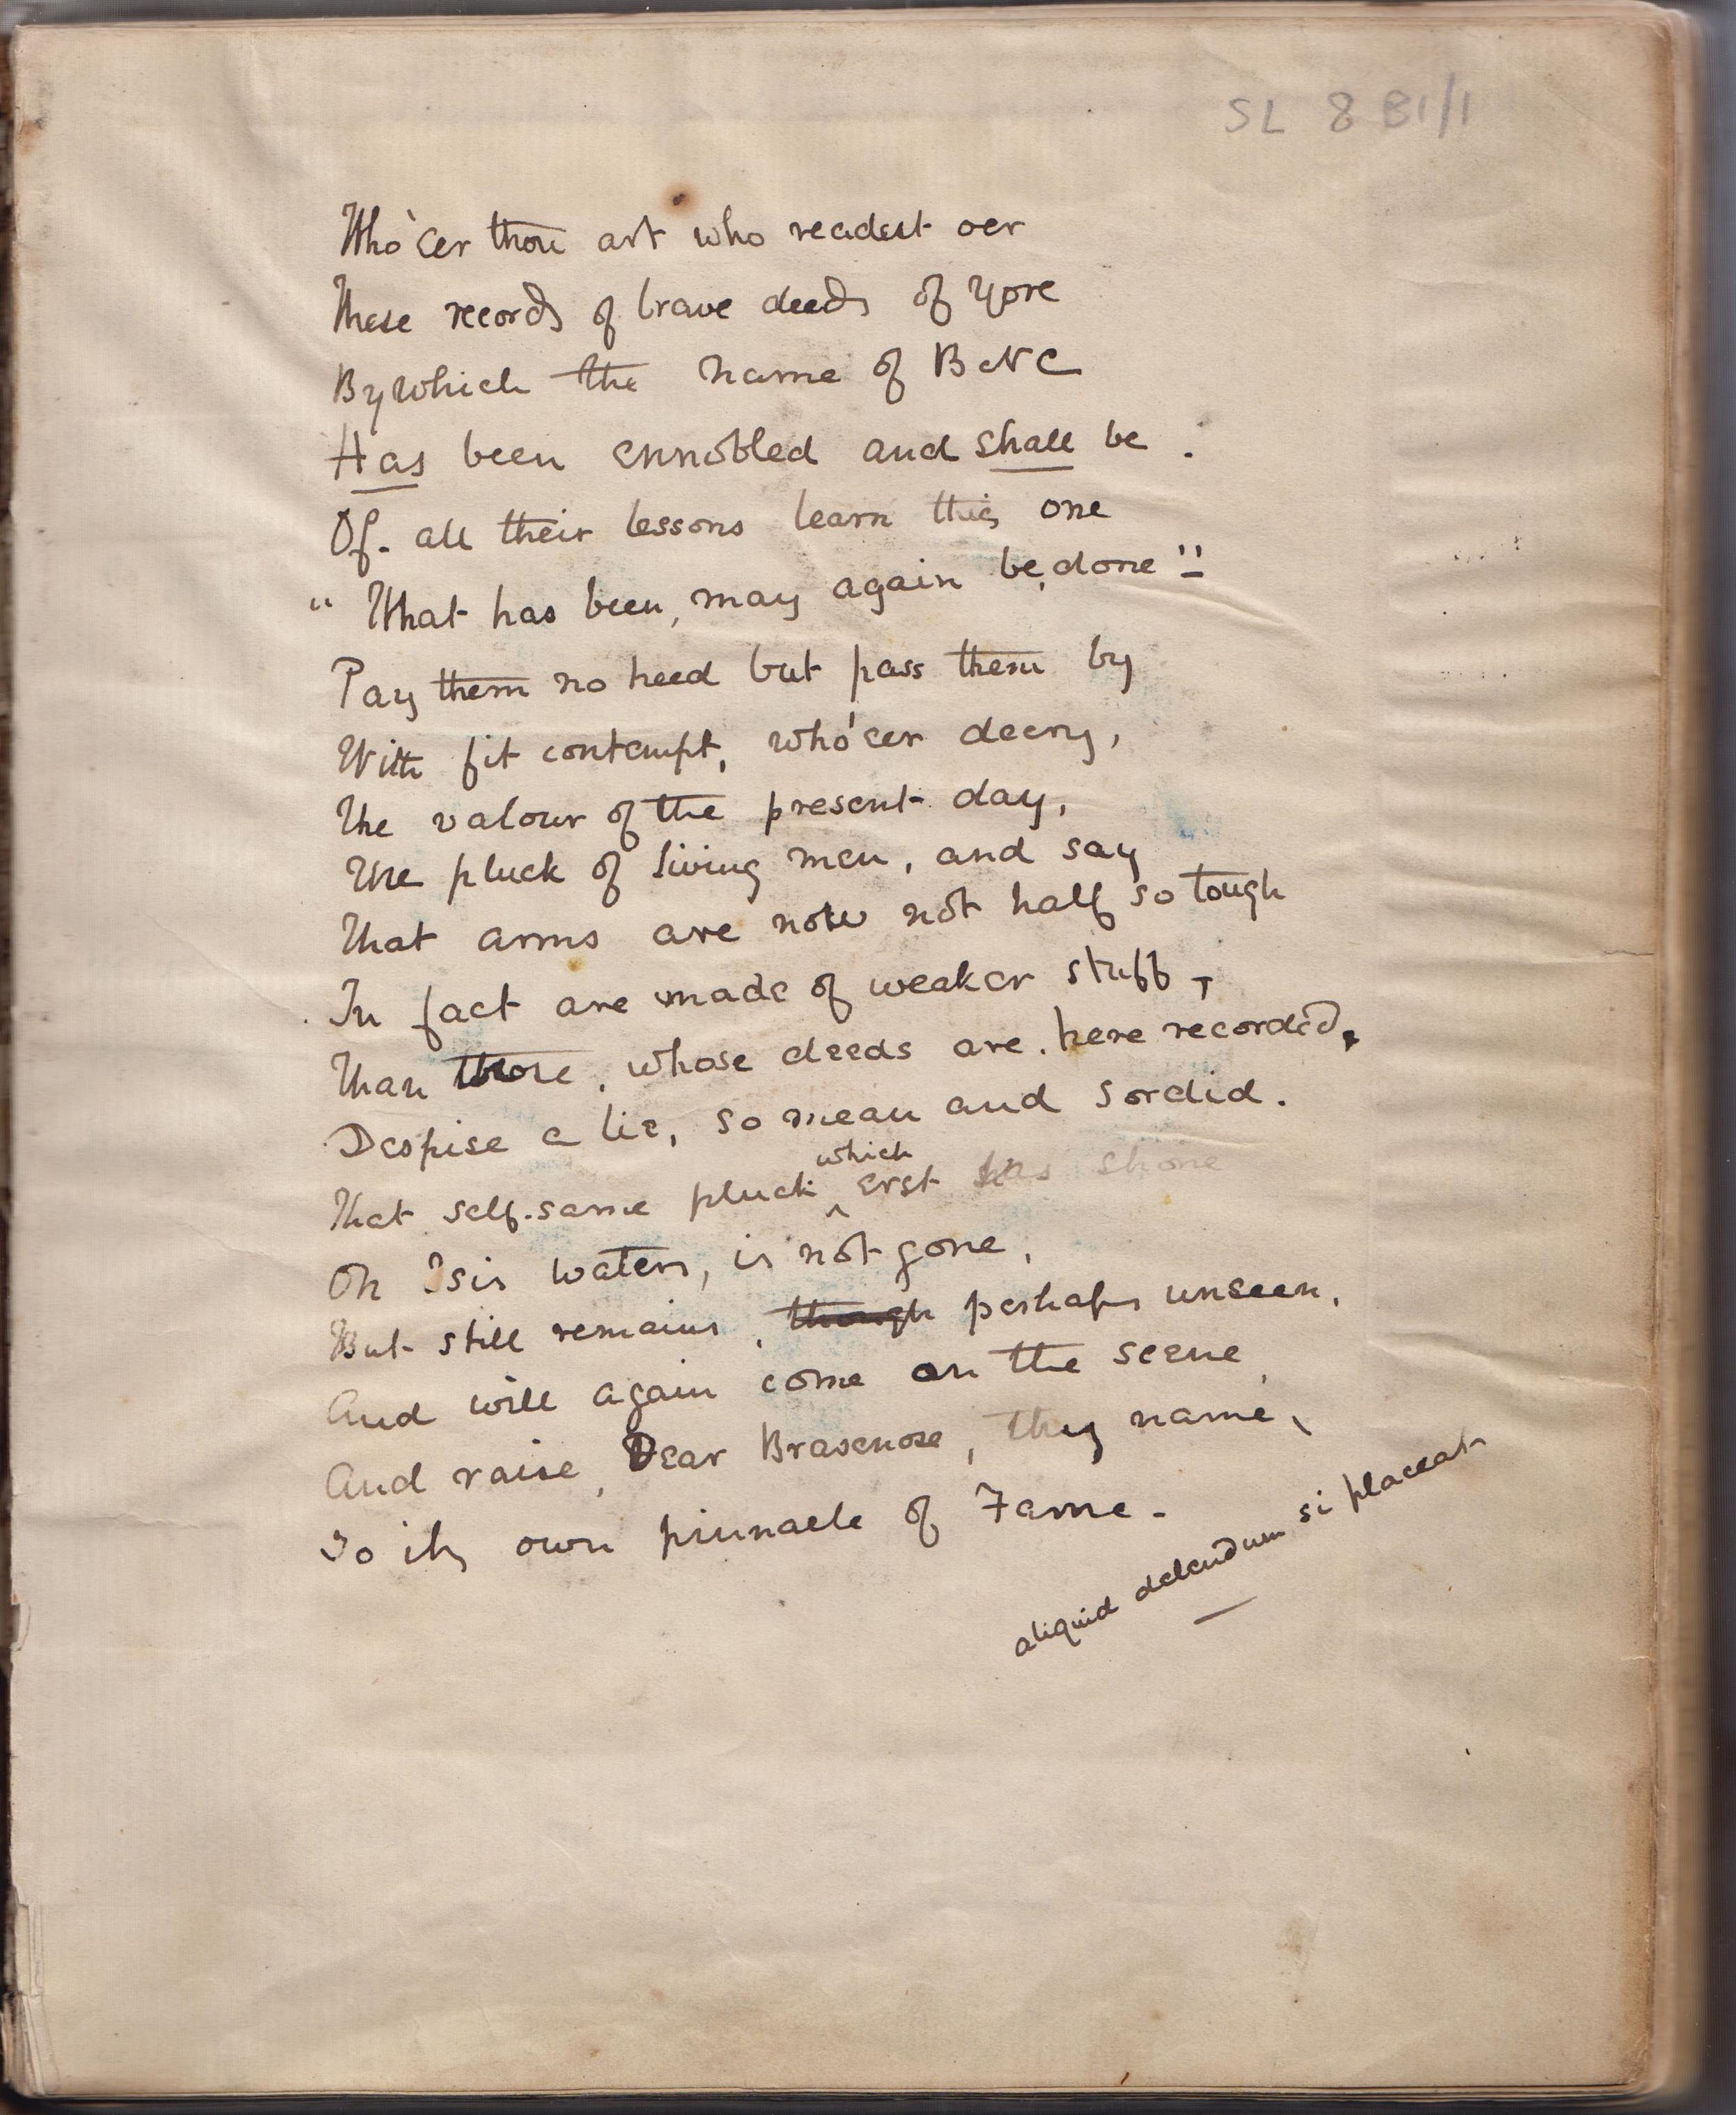 SL 8 B1/1
Who'eer thou art who readest oer
These records of brave deeds of Yore
By which the name of BNC
Has been ennobled and shall be.
Of all their lessons learn this one
"What has been, may again be, done"!
Pay them no heed but pass them by
With fit contempt, who'eer decry,
The valour of the present day,
The pluck of living men, and say
That arms are now not half so tough
In fact are made of weaker stuff,
Than those, whose deeds are here recorded,
Despise a lie, so mean and sordid.
which
That self-same pluck ^ erst has shone
On Isis waters, is not gone,
But still remains, though perhaps unseen,
And will again come on the scene,
And raise, Dear Brasenose, thy name,
To its own pinnacle of Fame.
aliquid delendum si placeat